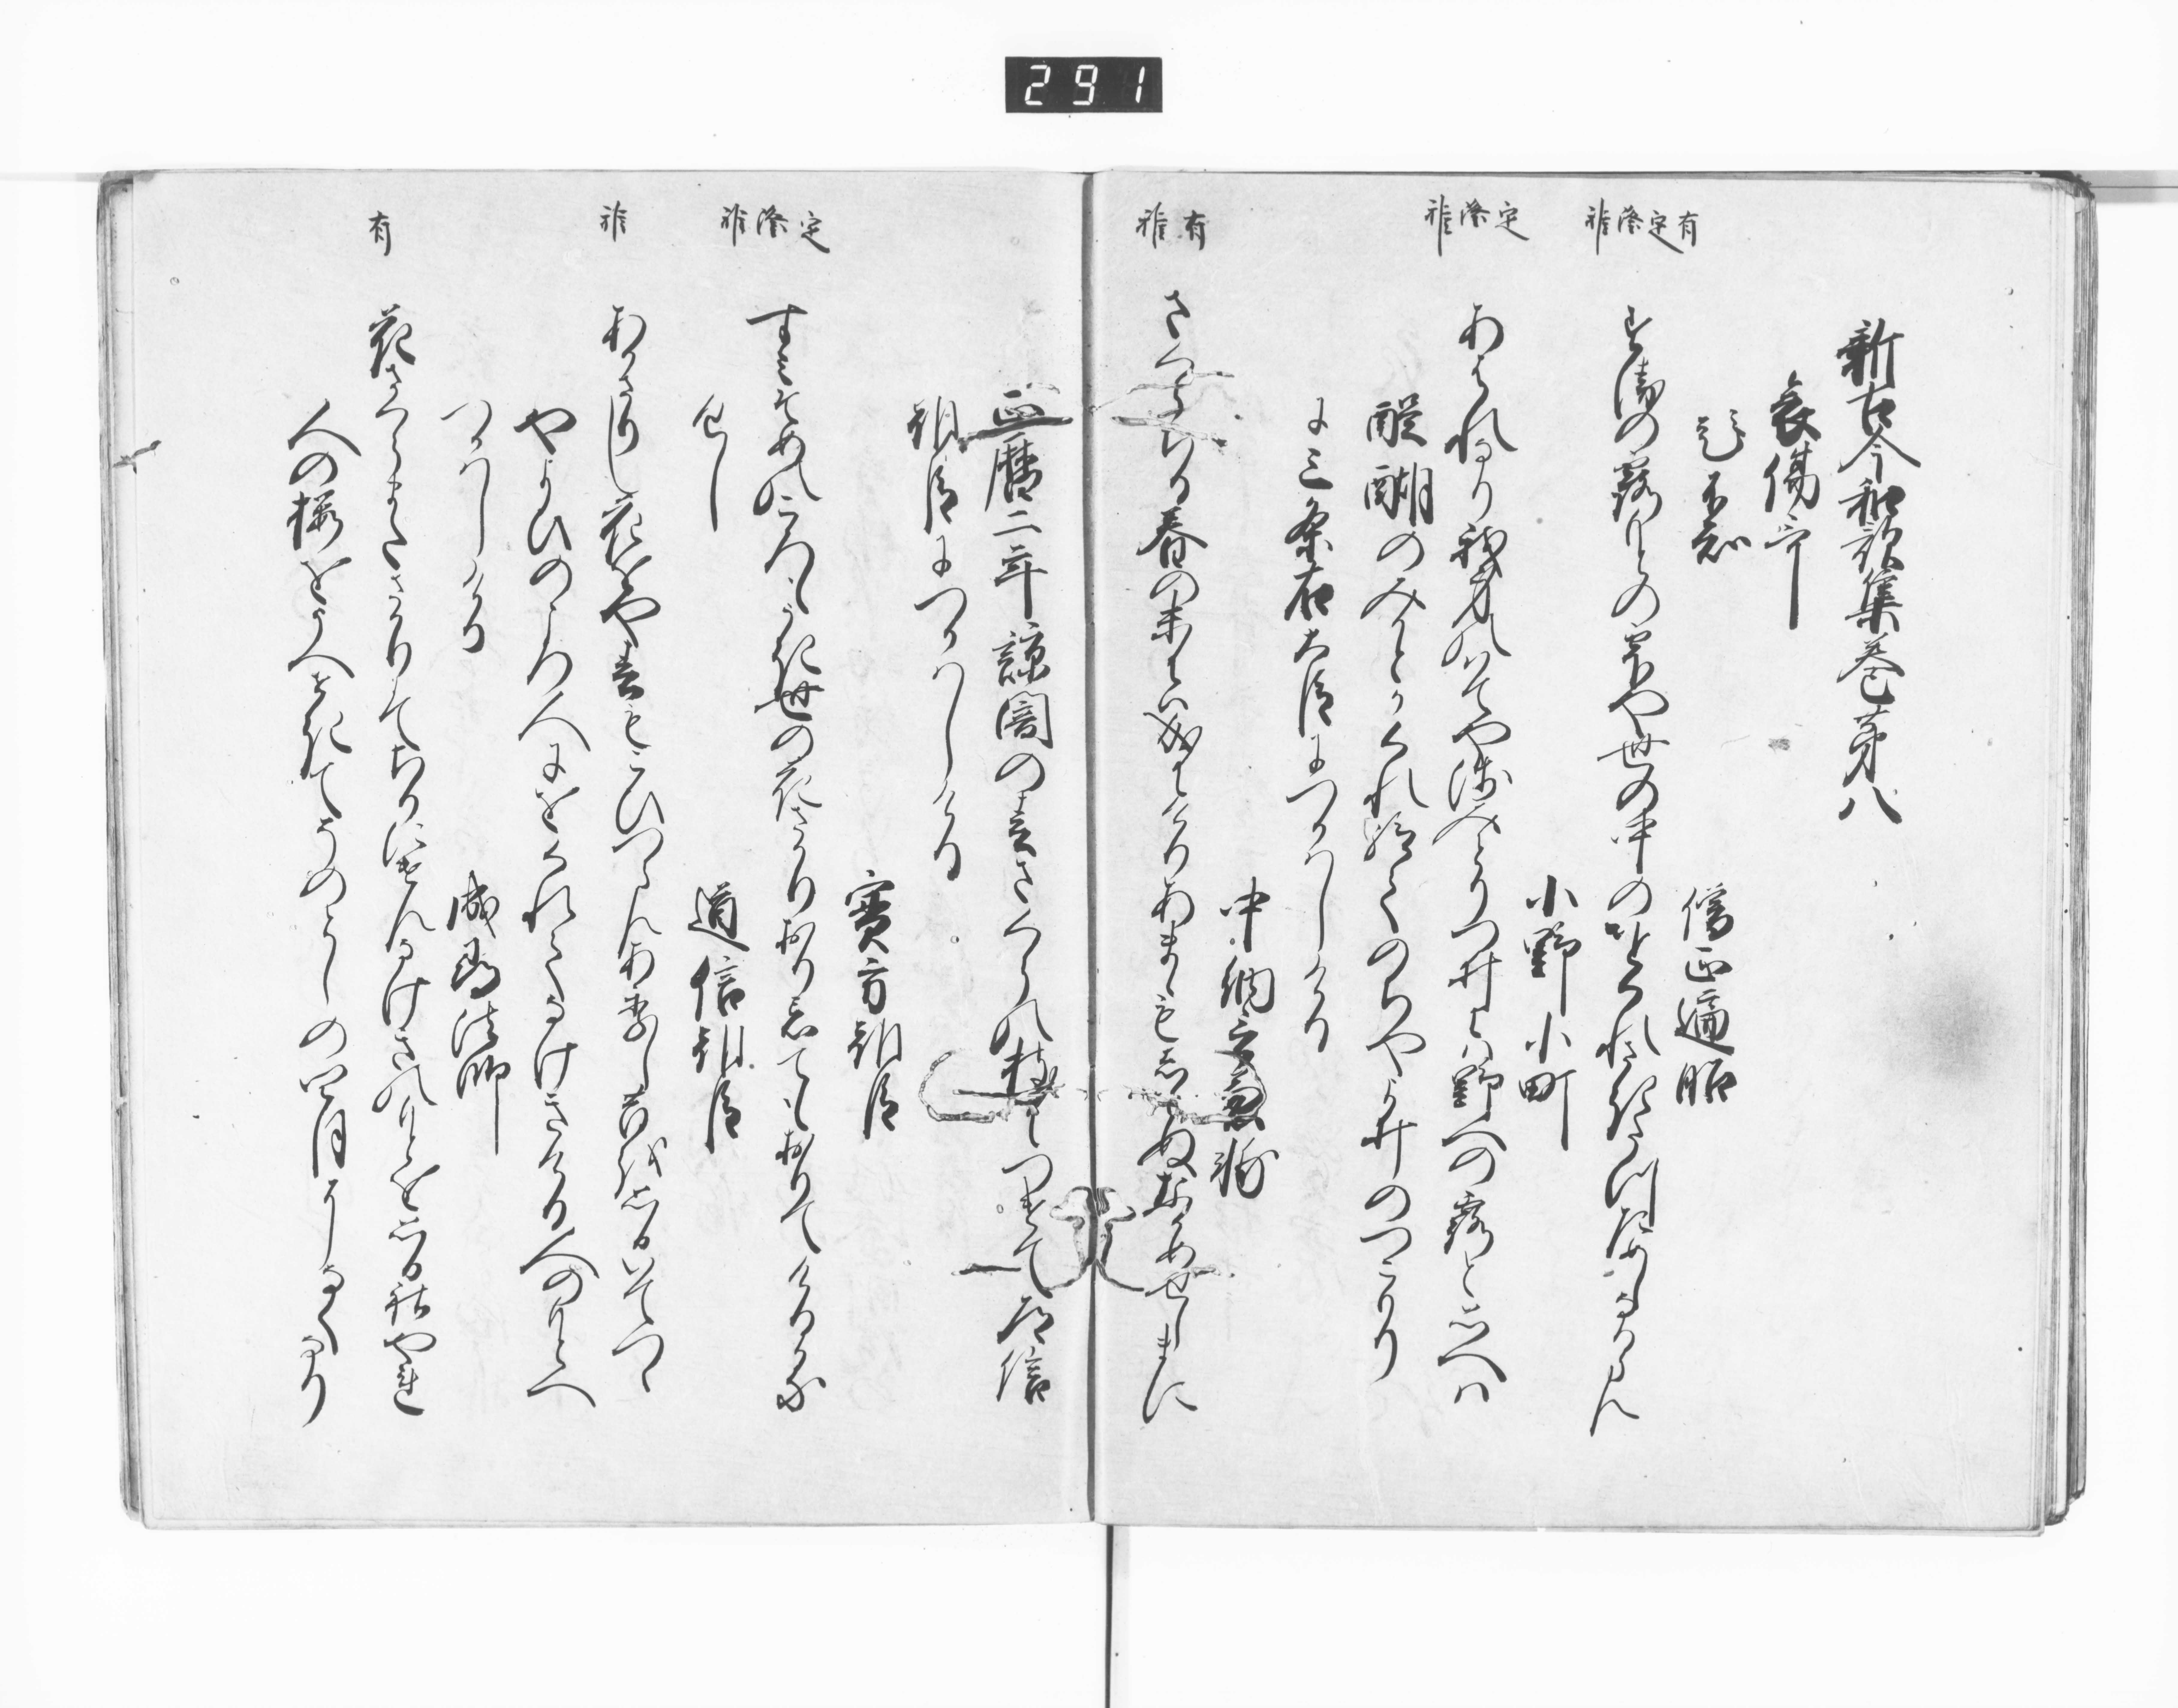 291
新古今和歌集巻第八
哀傷哥
題不知
僧正遍昭
有定隆雅
すゑの露もとの雫や世の中のをくれさきたつためしなるらん
小野小町
定隆雅
あはれなり我身のはてや浅みとりつゐには野への霞と思へは
醍醐のみかとかくれ給てのちやよひのつこもり
に三条右大臣につかはしける
中納言兼輔
有雅
さくらちる春の末には成にけりあまゝもしらぬなかめせしまに
正暦二年諒闇の春さくらの枝につけて道信
朝臣につかはしける
實方朝臣
定隆雅
すみそめのころもうき世の花さかりおり忘てもおりてけるかな
返し
道信朝臣
雅
あかさりし花をや春もこひつらんあり昔を思いてつゝ
やよひのころ人にをくれてなけきける人のもとへ
つかはしける
成尋法師
有
花さくらまたさかりにてちりにけんなけきのもとを思こそやれ
人の桜をうへをきてそのとしの四月になくなり